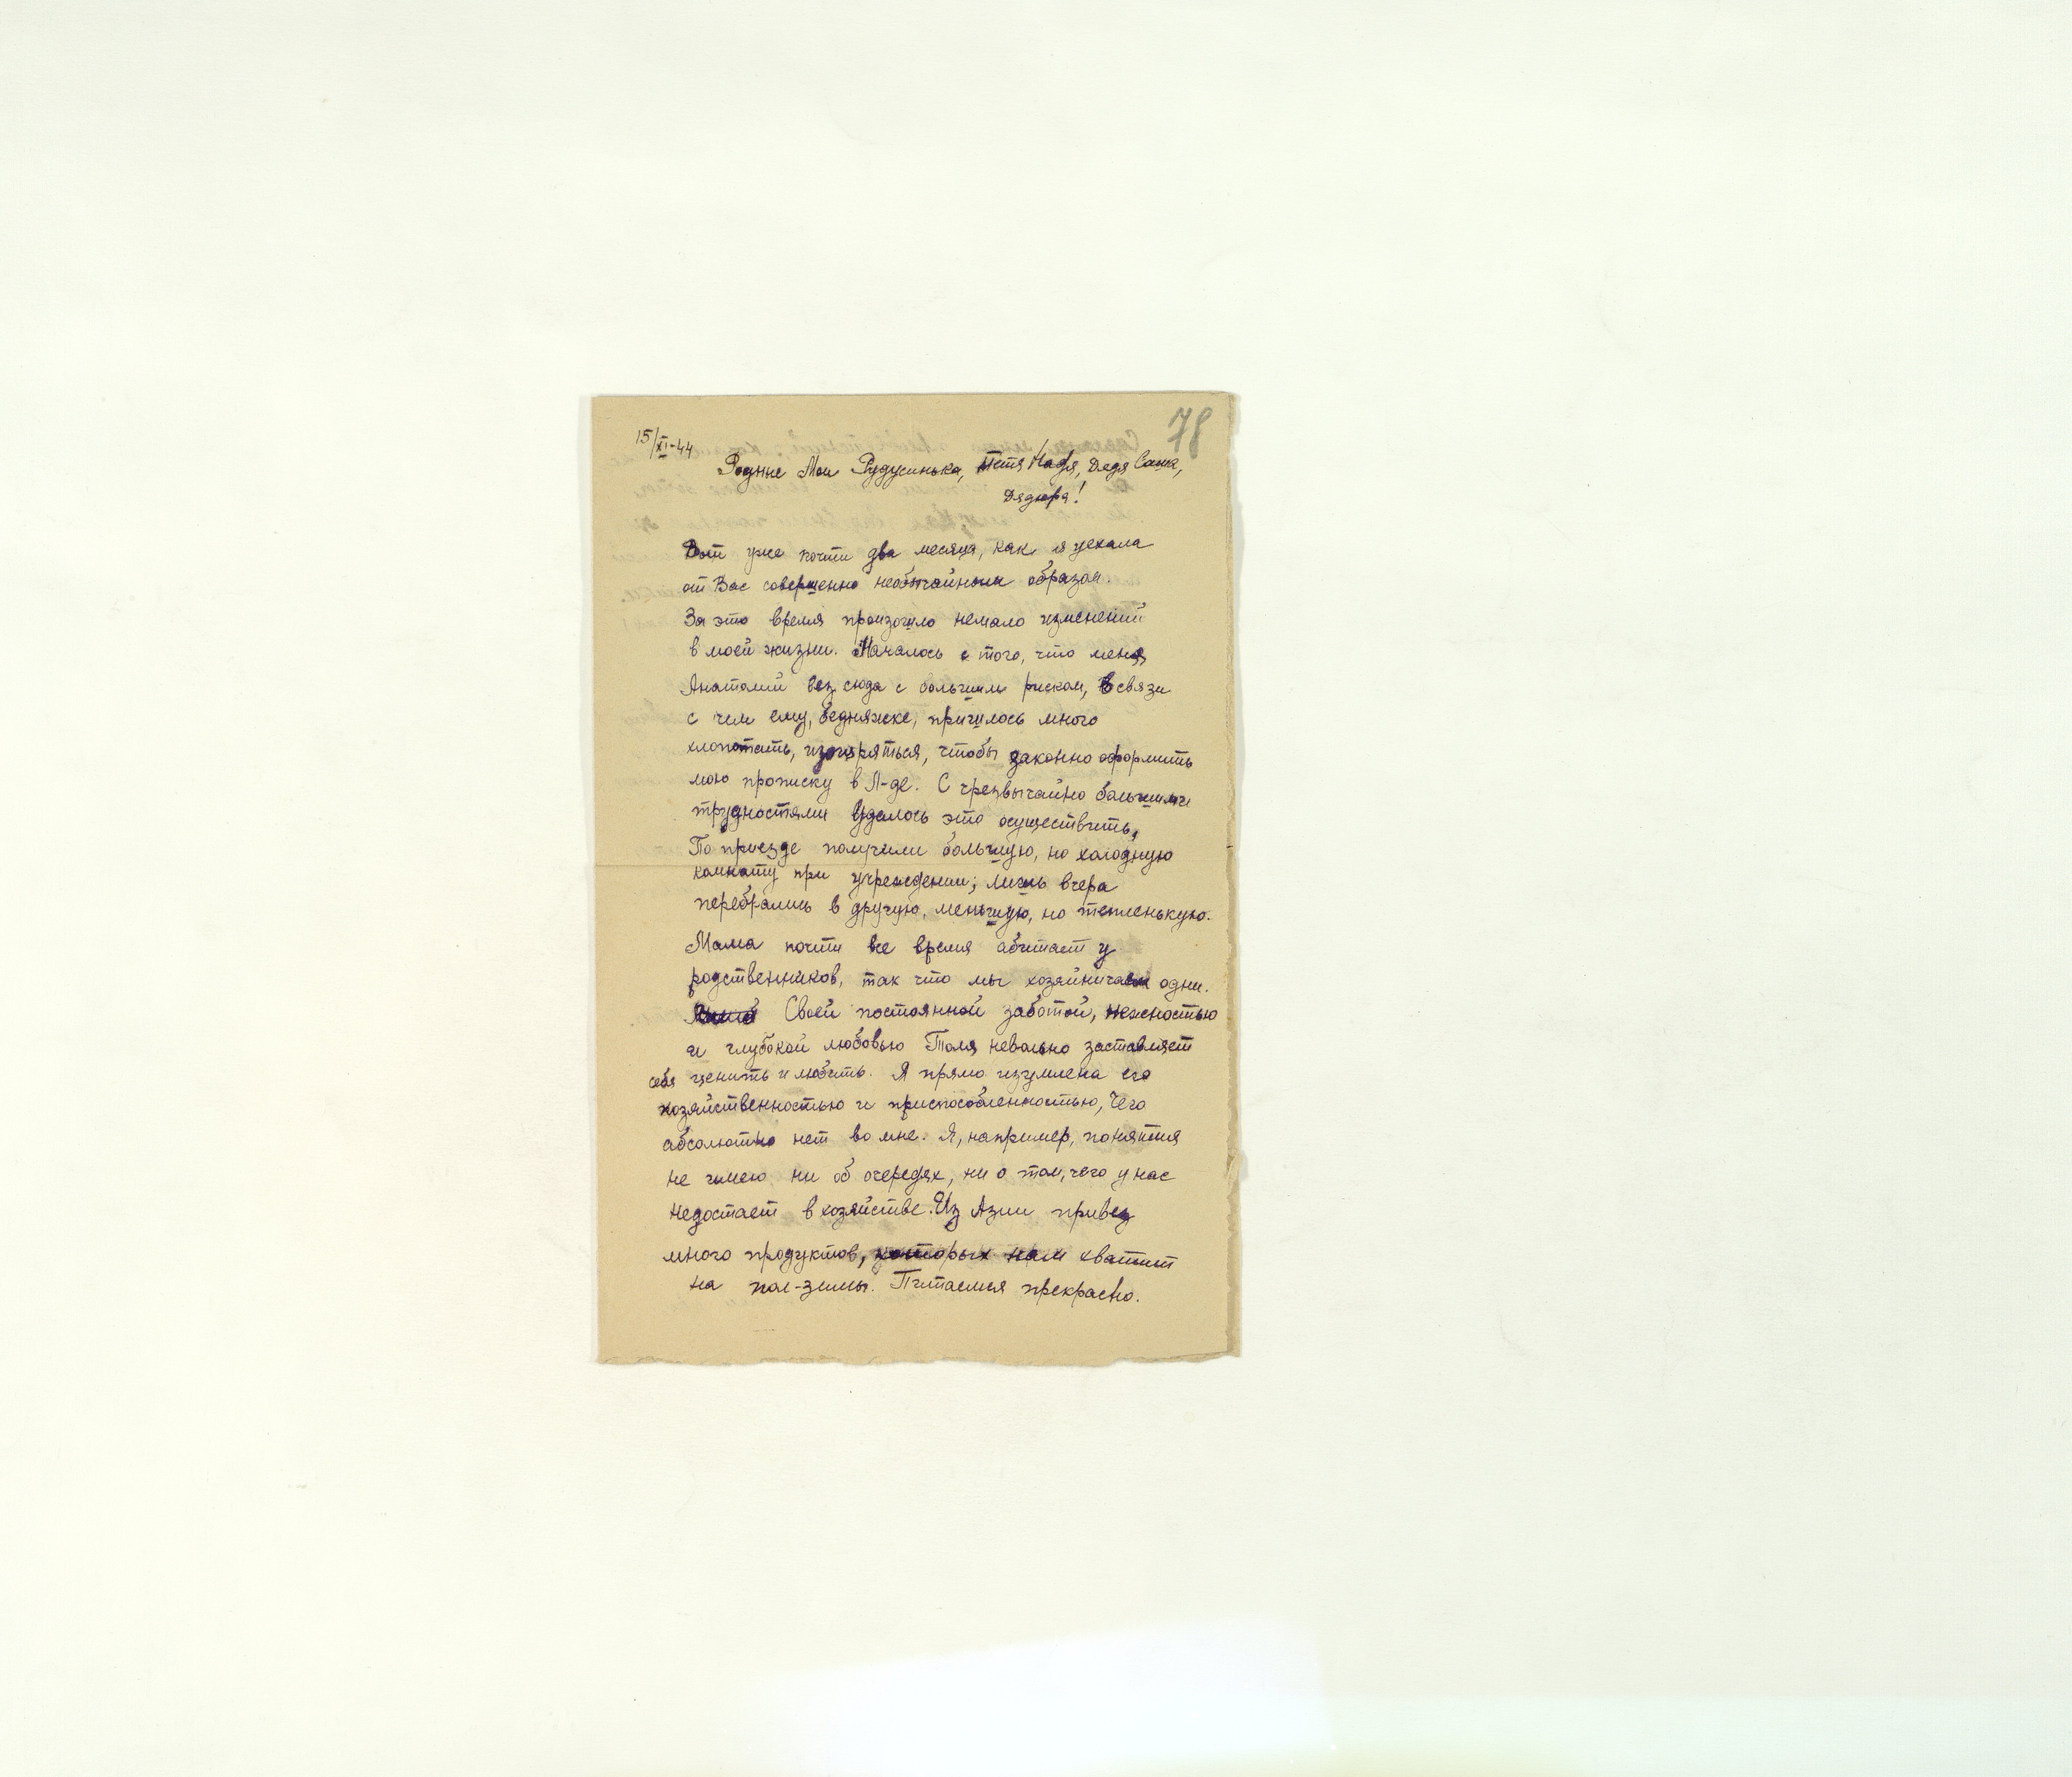 78
15/XI-44
Родные Мои Рудусинька, Тетя Надя, Дядя Саша,
Дядюра!
Вот уже почти два месяца, как я уехала
от Вас совершенно необычайным образом.
За это время произошло немало изменений
в моей жизни. Началось с того, что меня
Анатолий вез сюда с большим риском, в связи
с чем ему, бедняжке, пришлось много
хлопотать, изощряться, чтобы законно оформить
мою прописку в Л-де. С чрезвычайно большими
трудностями удалось это осуществить.
По приезде получили большую, но холодную
комнату при учреждении; лишь вчера
перебрались в другую, меньшую, но тепленькую.
Мама почти все время обитает у
родственников, так что мы хозяйничаем одни.
Своей постоянной заботой, нежностью
и глубокой любовью Толя невольно заставляет
себя ценить и любить. Я прямо изумлена его
хозяйственностью и приспособленностью, чего
абсолютно нет во мне. Я, например, понятия
не имею ни об очередях, ни о том, чего у нас
недостает в хозяйстве. Из Азии привез
много продуктов, которых нам хватит
на пол-зимы. Питаемся прекрасно.